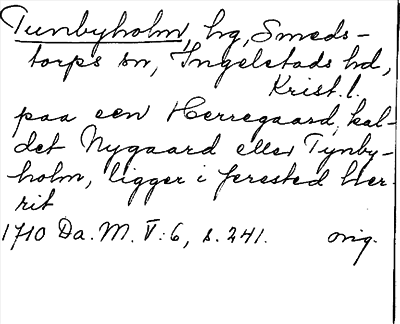 Tunbyholm, hg, Smeds-
torps sn, Ingelstads hd,
Krist. l.
paa een Herregaard, kal-
det Nygaard eller Tynby-
holm, ligger i Jerested Her-
rit
1710 Da. M. V:6, s. 241. orig.